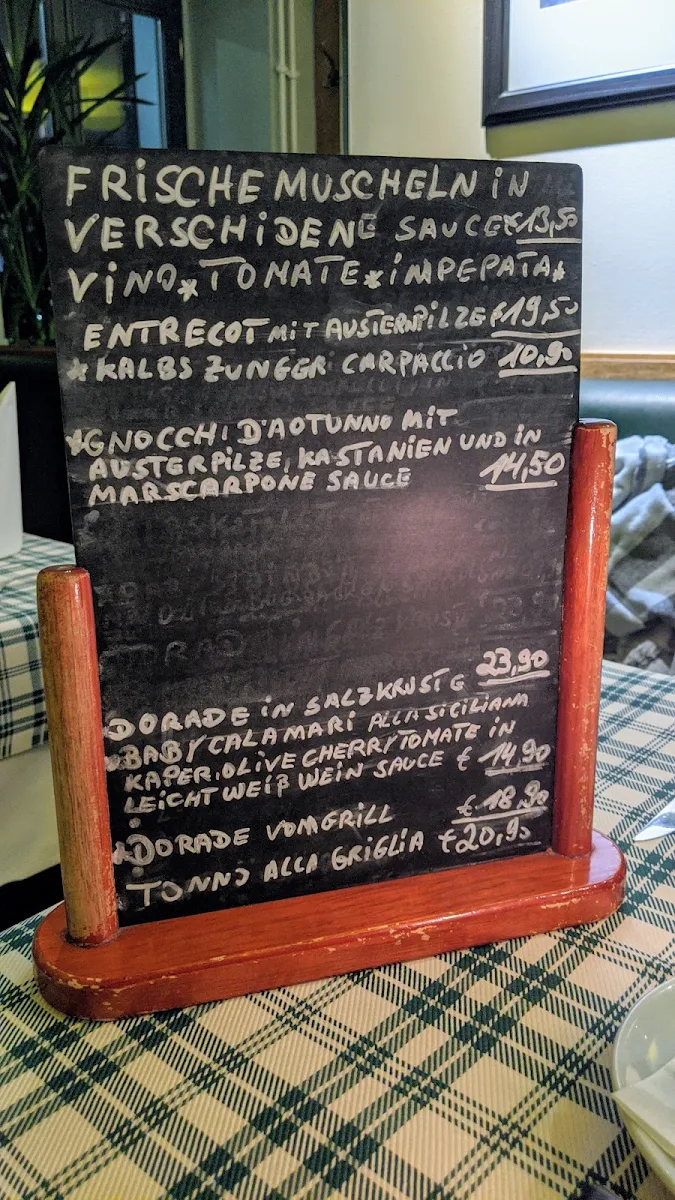 FRiSCHE MUSCHELN iN
VERSCHiDENE SAUCE € 13,50
ViNO*TOMATE*iMPEPATA*
ENTRECOT MiT AUSTERNPiLZE € 19,50
*KALBS ZUNGER CARPACCiO 10,90
*GNOCCHi D'AOTUNNO MiT
AUSTERPiLZE, KASTANiEN UND iN
MARSCARPONE SAUCE 14,50
DORADE iN SALZKRUSTE 23,90
*BABYCALAMARi ALLA SiCiLiANA
KAPER,OLiVE CHERRYTOMATE iN
LEiCHT WEiß WEiN SAUCE € 14,90
*DORADE VOM GRiLL € 18,90
TONNO ALLA GRiGLiA €20,90